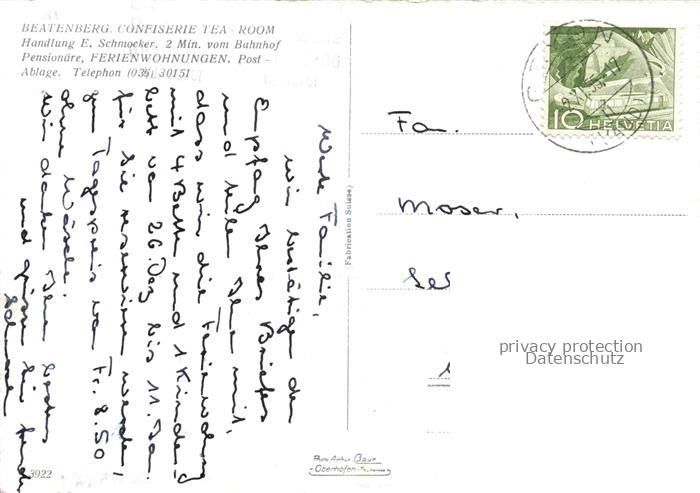 BEATENBERG. CONFISERIE TEA - ROOM
Handlung E. Schmocker. 2 Min. vom Bahnhof
Pensionäre, FERIENWOHNUNGEN. Post -
Ablage. Telephon (036) 30151
Werte Familie,
wir bestätigen den
Empfang Ihres Briefes
und teilen Ihnen mit,
dass wir die Ferienwohnung
mit 4 Betten und 1 Kinder-
bett vom 26. Dez bis 11. Jan.
für Sie reservieren werden,
zum Tagespreis von Fr. 8.50
ohne Wäsche.
Wir danken Ihnen bestens
und grüssen Sie freundl.
Schmocker
3922
(Fabrication Suisse)
10 HELVETIA
Fam.
Moser,
privacy protection
Datenschutz
Photo Arthur Baur
Oberhofen